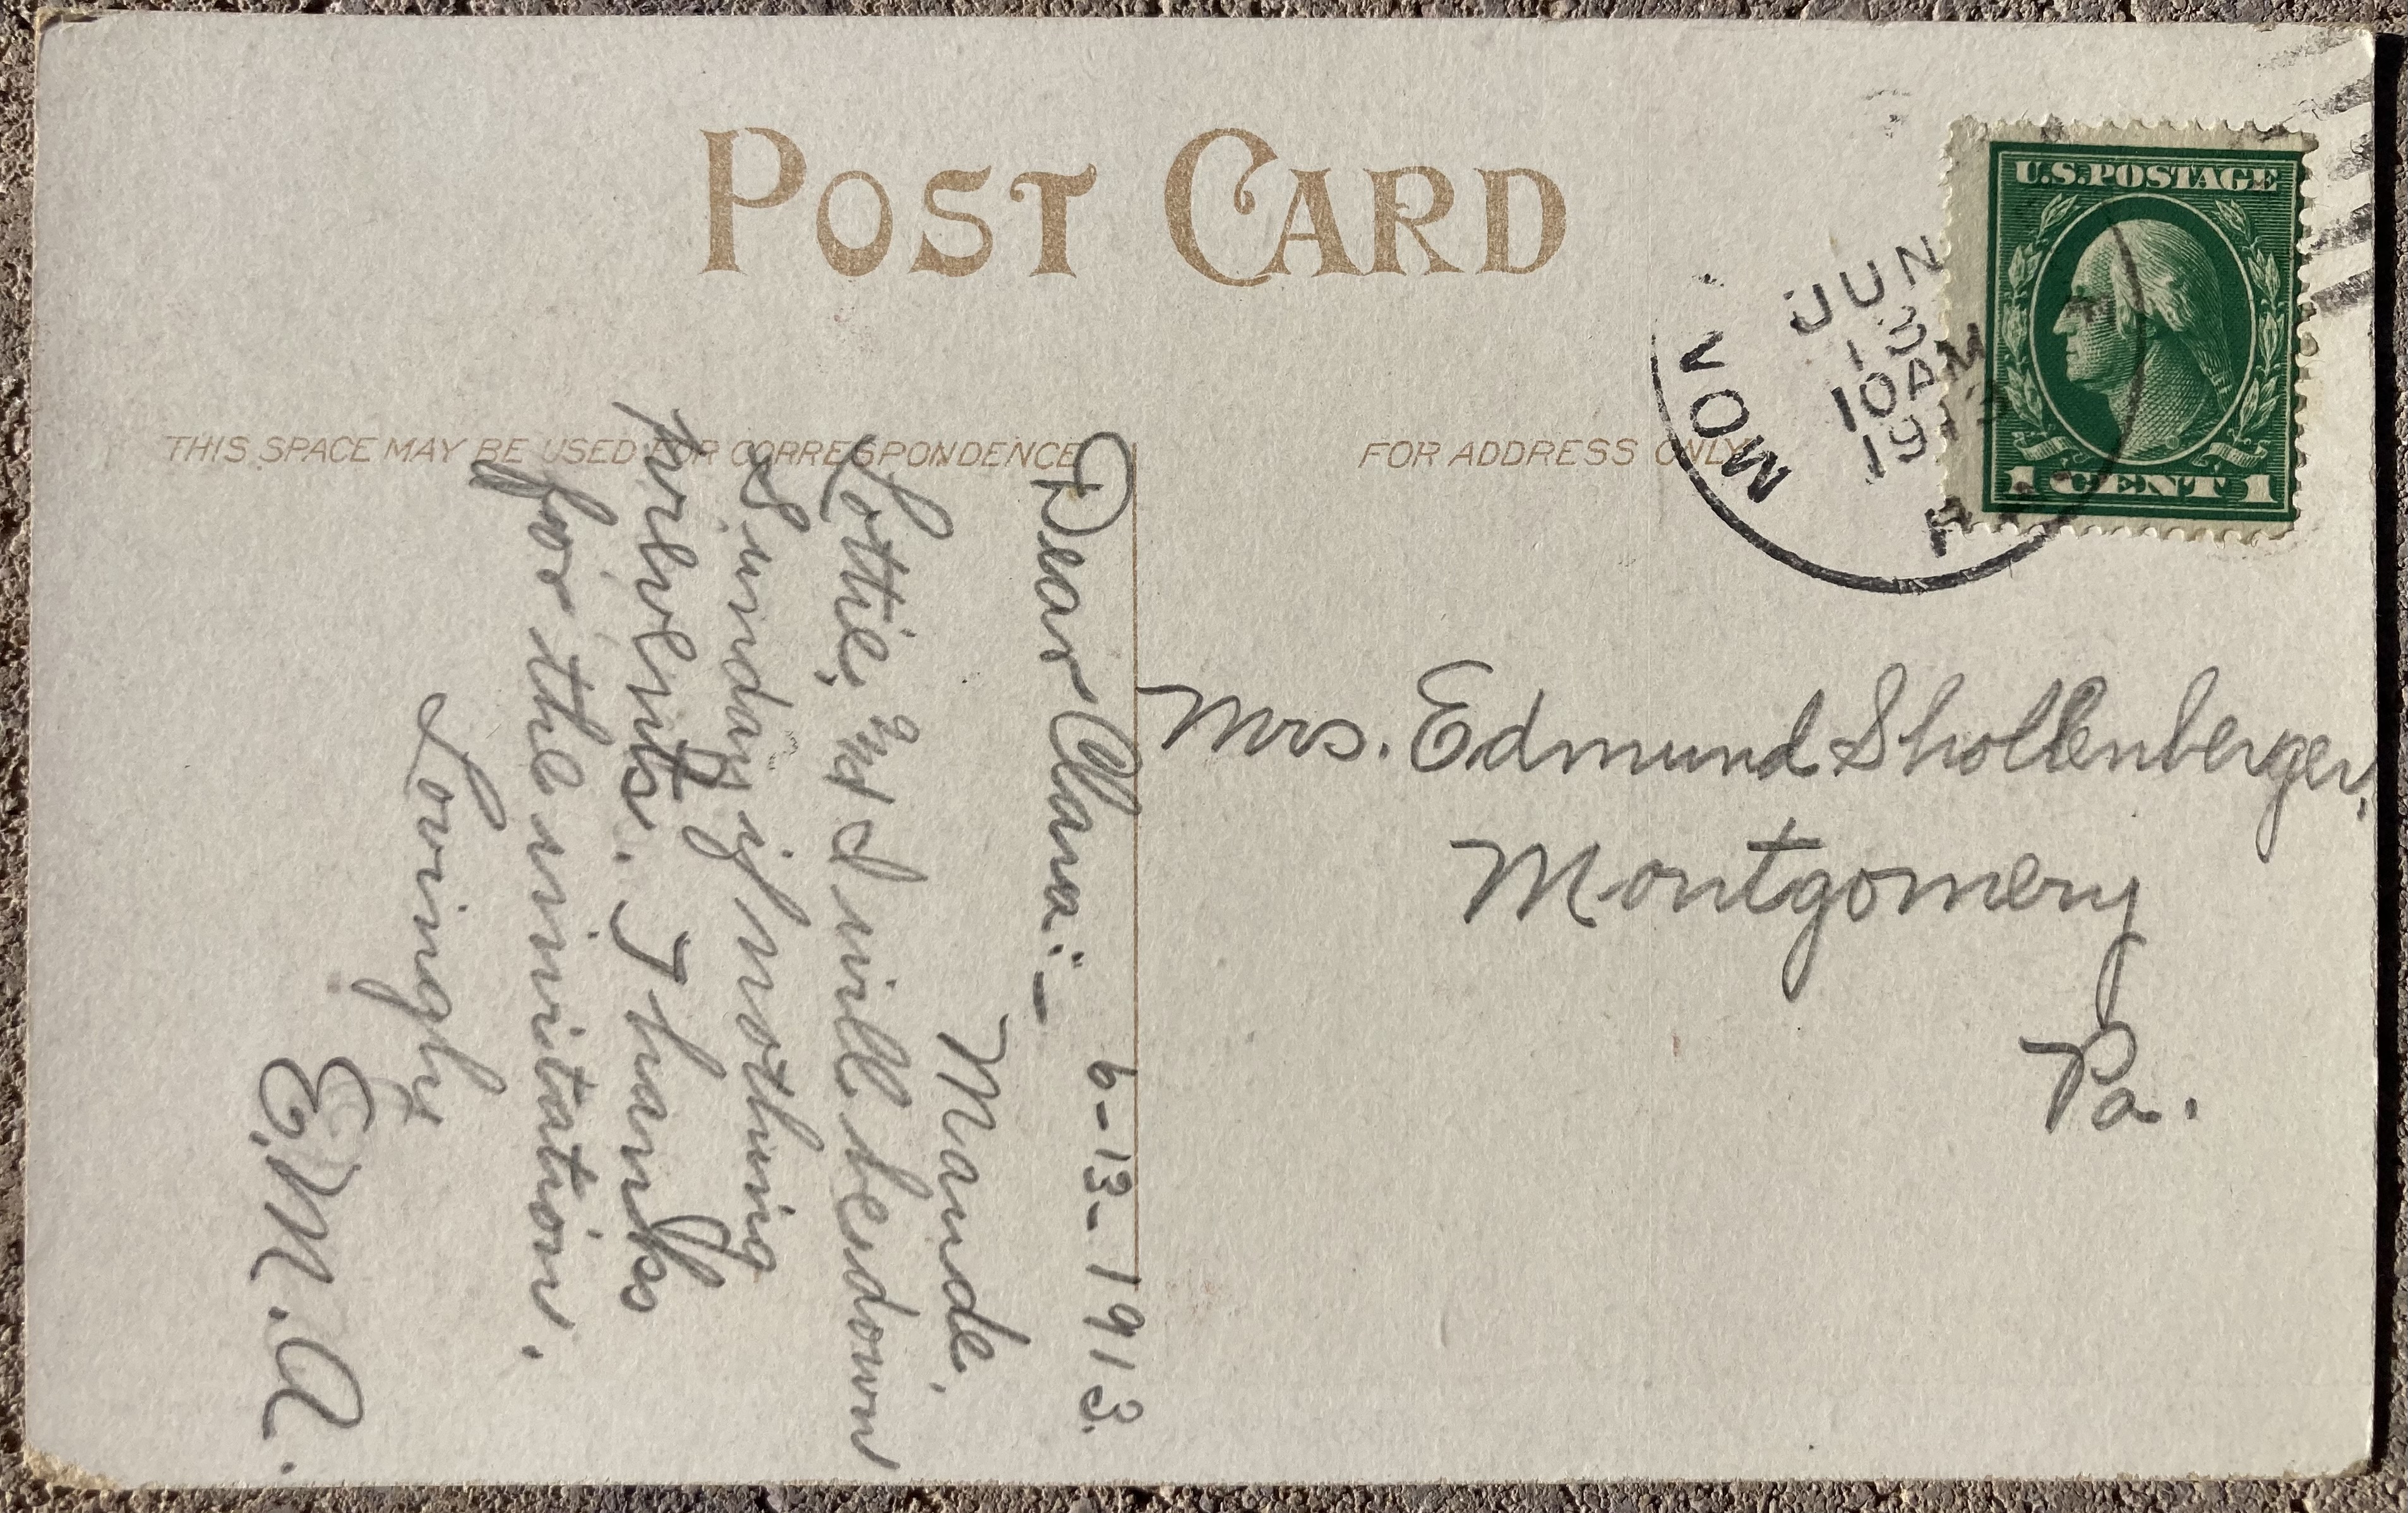 POST CARD
U.S. POSTAGE
1 CENT 1
JUN
13
10 AM
1913
MON
THIS SPACE MAY BE USED FOR CORRESPONDENCE
FOR ADDRESS ONLY
6-13-1913.
Dear Clara:-
Maude,
Lottie, and I will be down
Sunday if nothing
prevents. Thanks
for the invitation.
Lovingly
E.M.A.
Mrs. Edmund Shollenberger,
Montgomery
Pa.